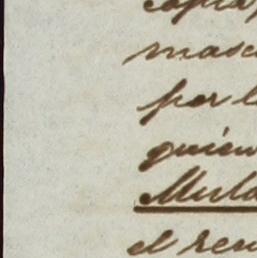 copia
masc
por l
quien
Mula
el ren